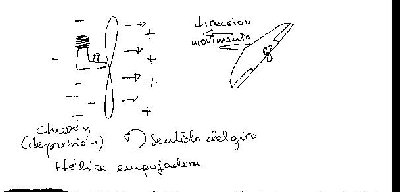 direccion
movimiento
(depresión)
Sentido del giro
Hélice empujadora